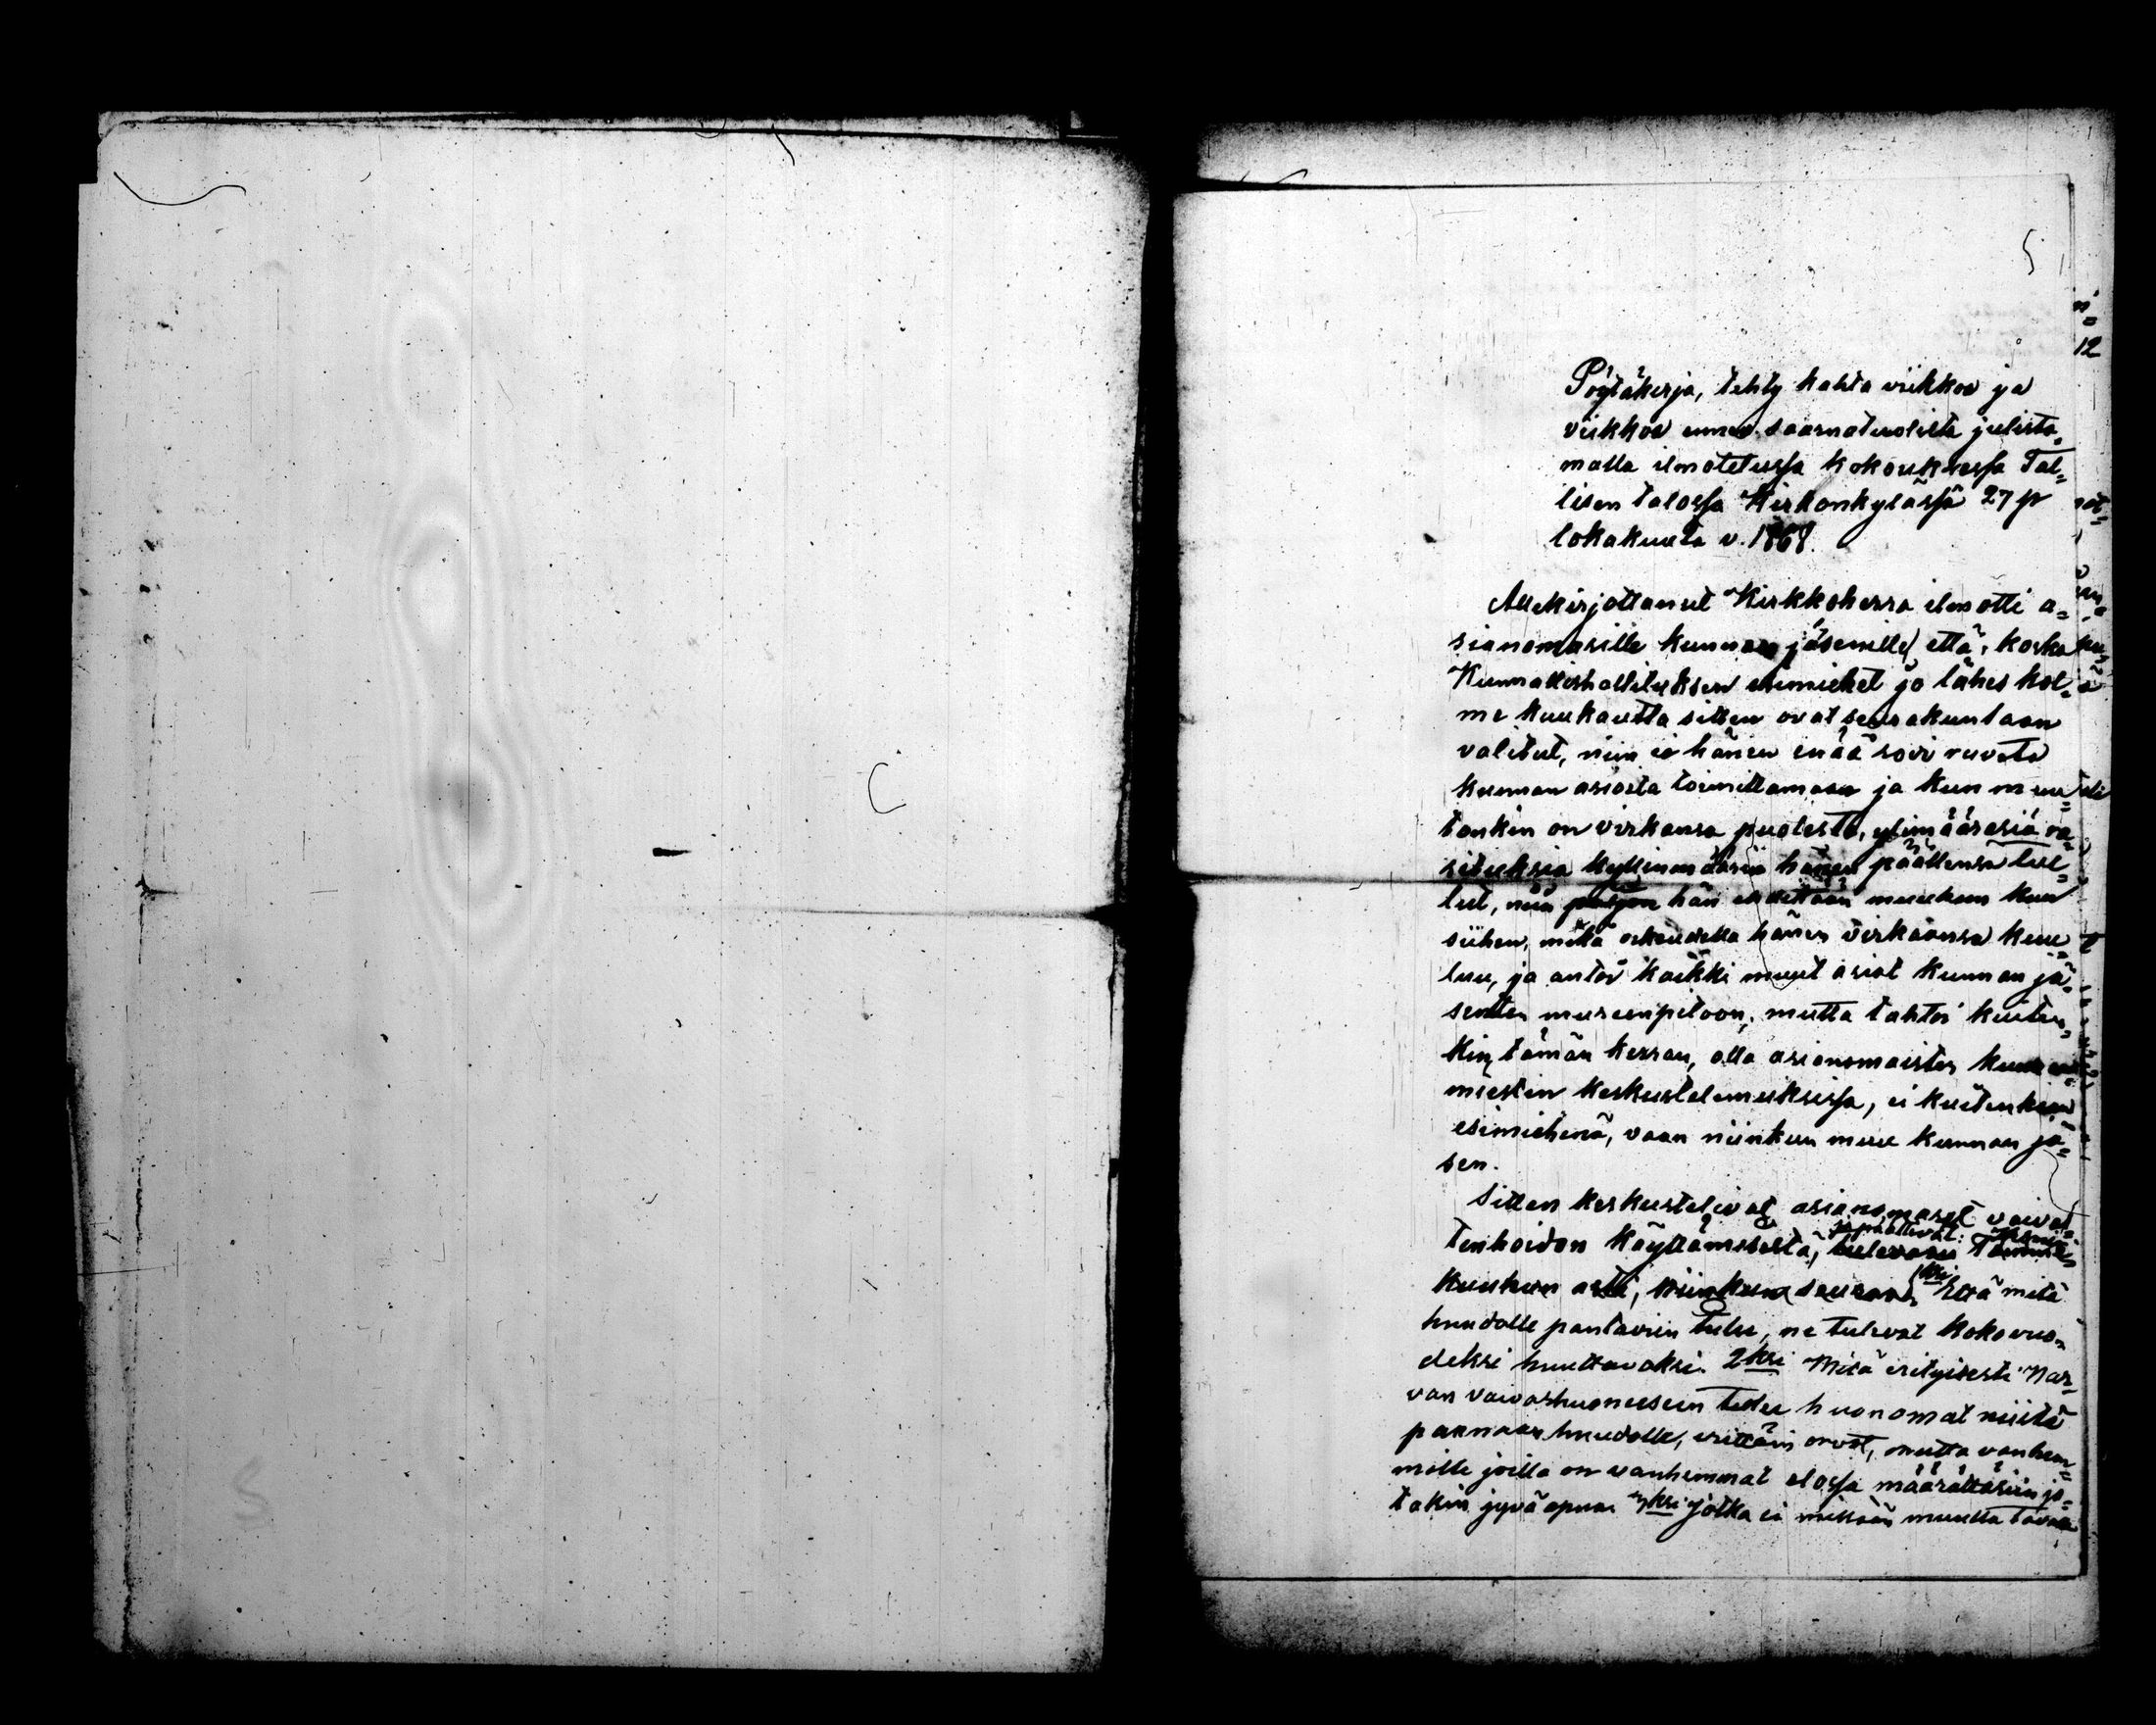 Pöytäkirja, tehty kahta viikkoa ja
viikkoa ennen saarnatuolista julista-
malla ilmotetussa kokouksessa Tal=
lisen talossa Kirkonkylässä 27 p
lokakuuta v. 1868.
Allekirjottanut Kirkkoherra ilmotti a=
sianomasille kunnan jäsenille että, koska
Kunnallishallituksen esimiehet jo lähes kol=
me kuukautta sitten ovat seurakuntaan
valitut, niin ei hänen enää sovi ruveta
kunnan asioita toimittamaan ja kun muu=
tonkin on virkansa puolesta, ylimääräsiä ra=
situksia kyllinmääsiä hänen päällensä tul=
lut, niin hän muuhun kun
siihen, mitä oikeudella hänen virkaansa kuu=
luu, ja antoi kaikki muut asiat kunnan jä=
senten mureenpitoon, mutta tahtoi kuiten=
kin, tämän kerran, olla asianomaisten kunnan
miesten keskustelemuksissa, ei kuitenkaan
esimiehenä, vaan niinkun muu kunnan jä=
sen.
Sitten keskustelivat asianomaset vaivas=
tenhoidon käyttämisestä, ja päättivät: tulevaan Tammi=
kuuhun asti, niinkun seuraa, 1ksi Että mitä
huudolle pantaviin tulee, ne tulevat kokovuo=
deksi huuttavaksi. 2ksi Mitä erityisesti Nar=
van vaivashuoneeseen tulee huonomat niistä
pannaan huudolle, erittäin orvot, mutta vanhem=
mille joilla on vanhemmat elossa määrättäsiin jo=
takin jyväapua 3ksi Jotka ei millään muulla tavalla